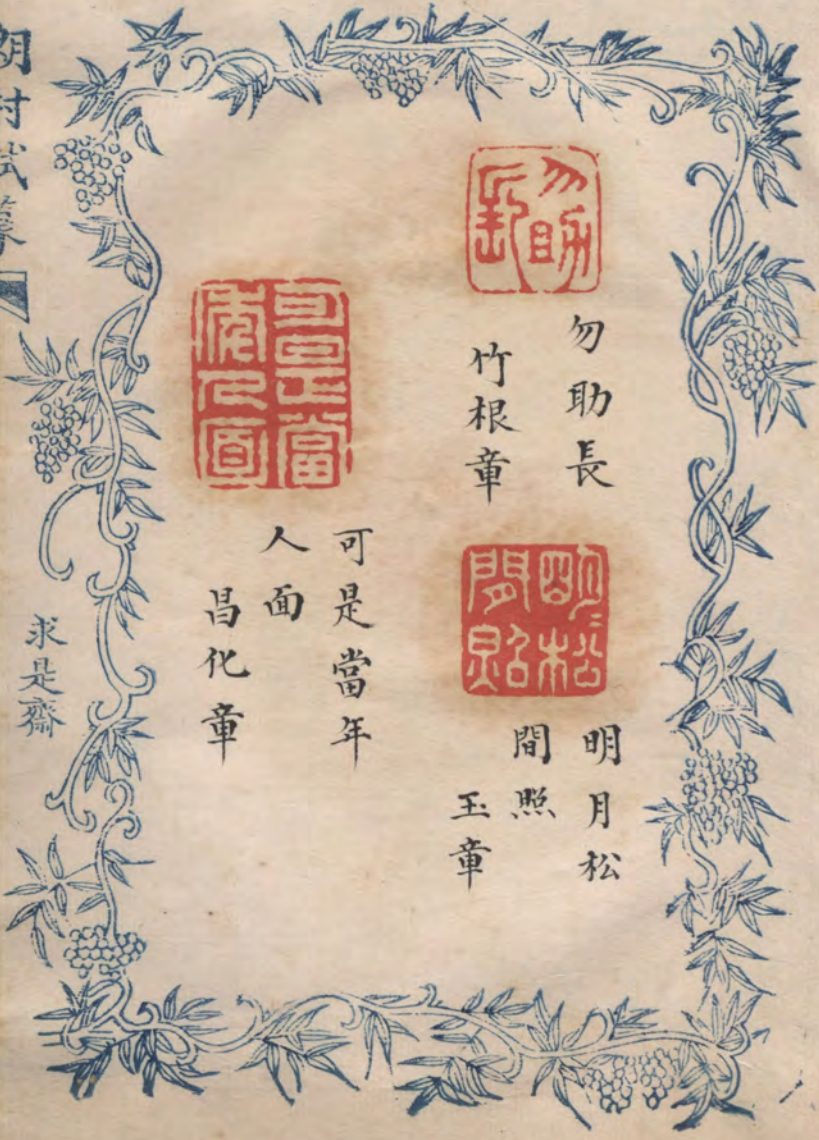 勿助
長
勿助長
竹根章
明月松
間照
明月松
間照
玉章
可是當
年人面
可是當年
人面
昌化章
村試篆
求是齋